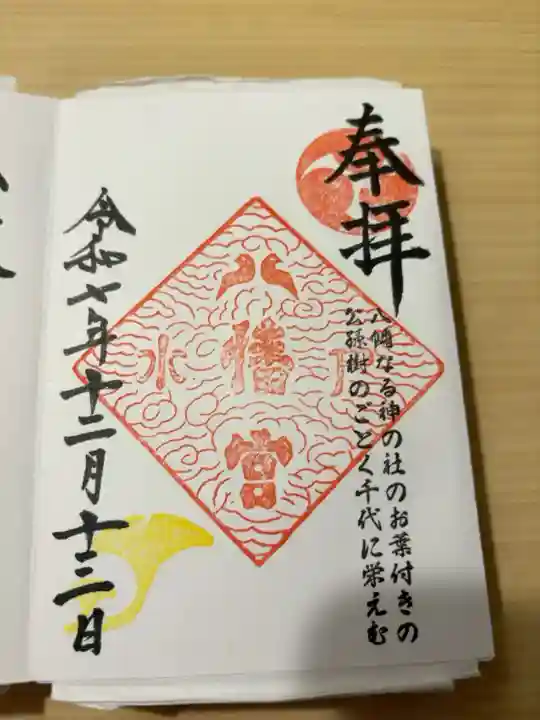 奉拝
八幡なる神の社のお葉付きの
公孫樹のごとく千代に栄えむ
水戸
八幡宮
令和七年十二月十三日